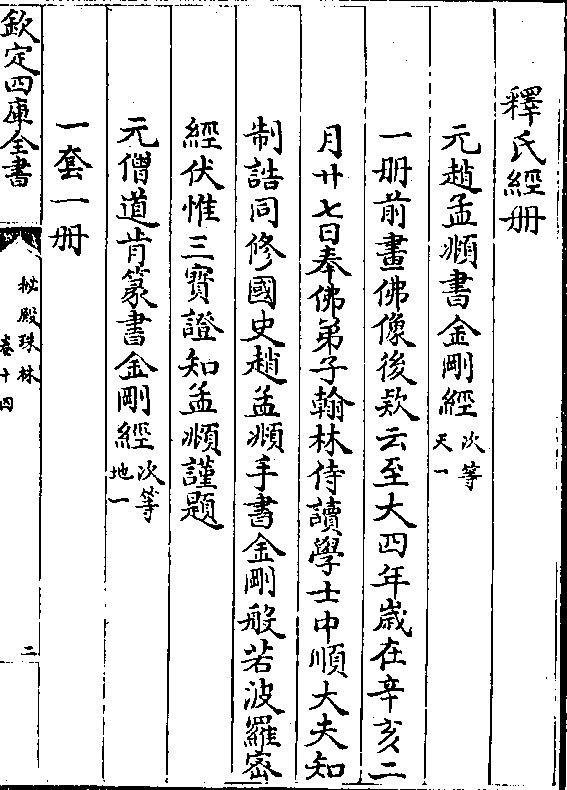 釋氏經册
元趙孟頫書金剛經次等天一
一册前畫佛像後款云至大四年歲在辛亥二
月廿七日奉佛弟子翰林侍讀學士中順大夫知
制誥同修國史趙孟頫手書金剛般若波羅密
經伏惟三寶證知孟頫謹題
元僧道肯篆書金剛經次等地一
一套一册
欽定四庫全書
祕殿珠林
卷十四
二